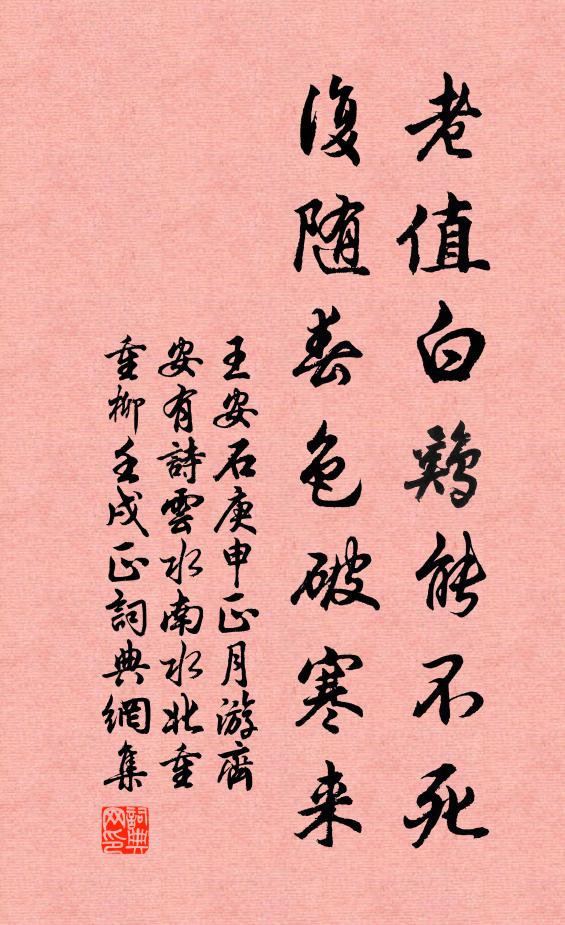 老值白鷄能不死
復随春色破寒来
王安石庚申正月游齊
安有詩雲水南水北重
重柳壬戌正詞典網集
詞典
网印